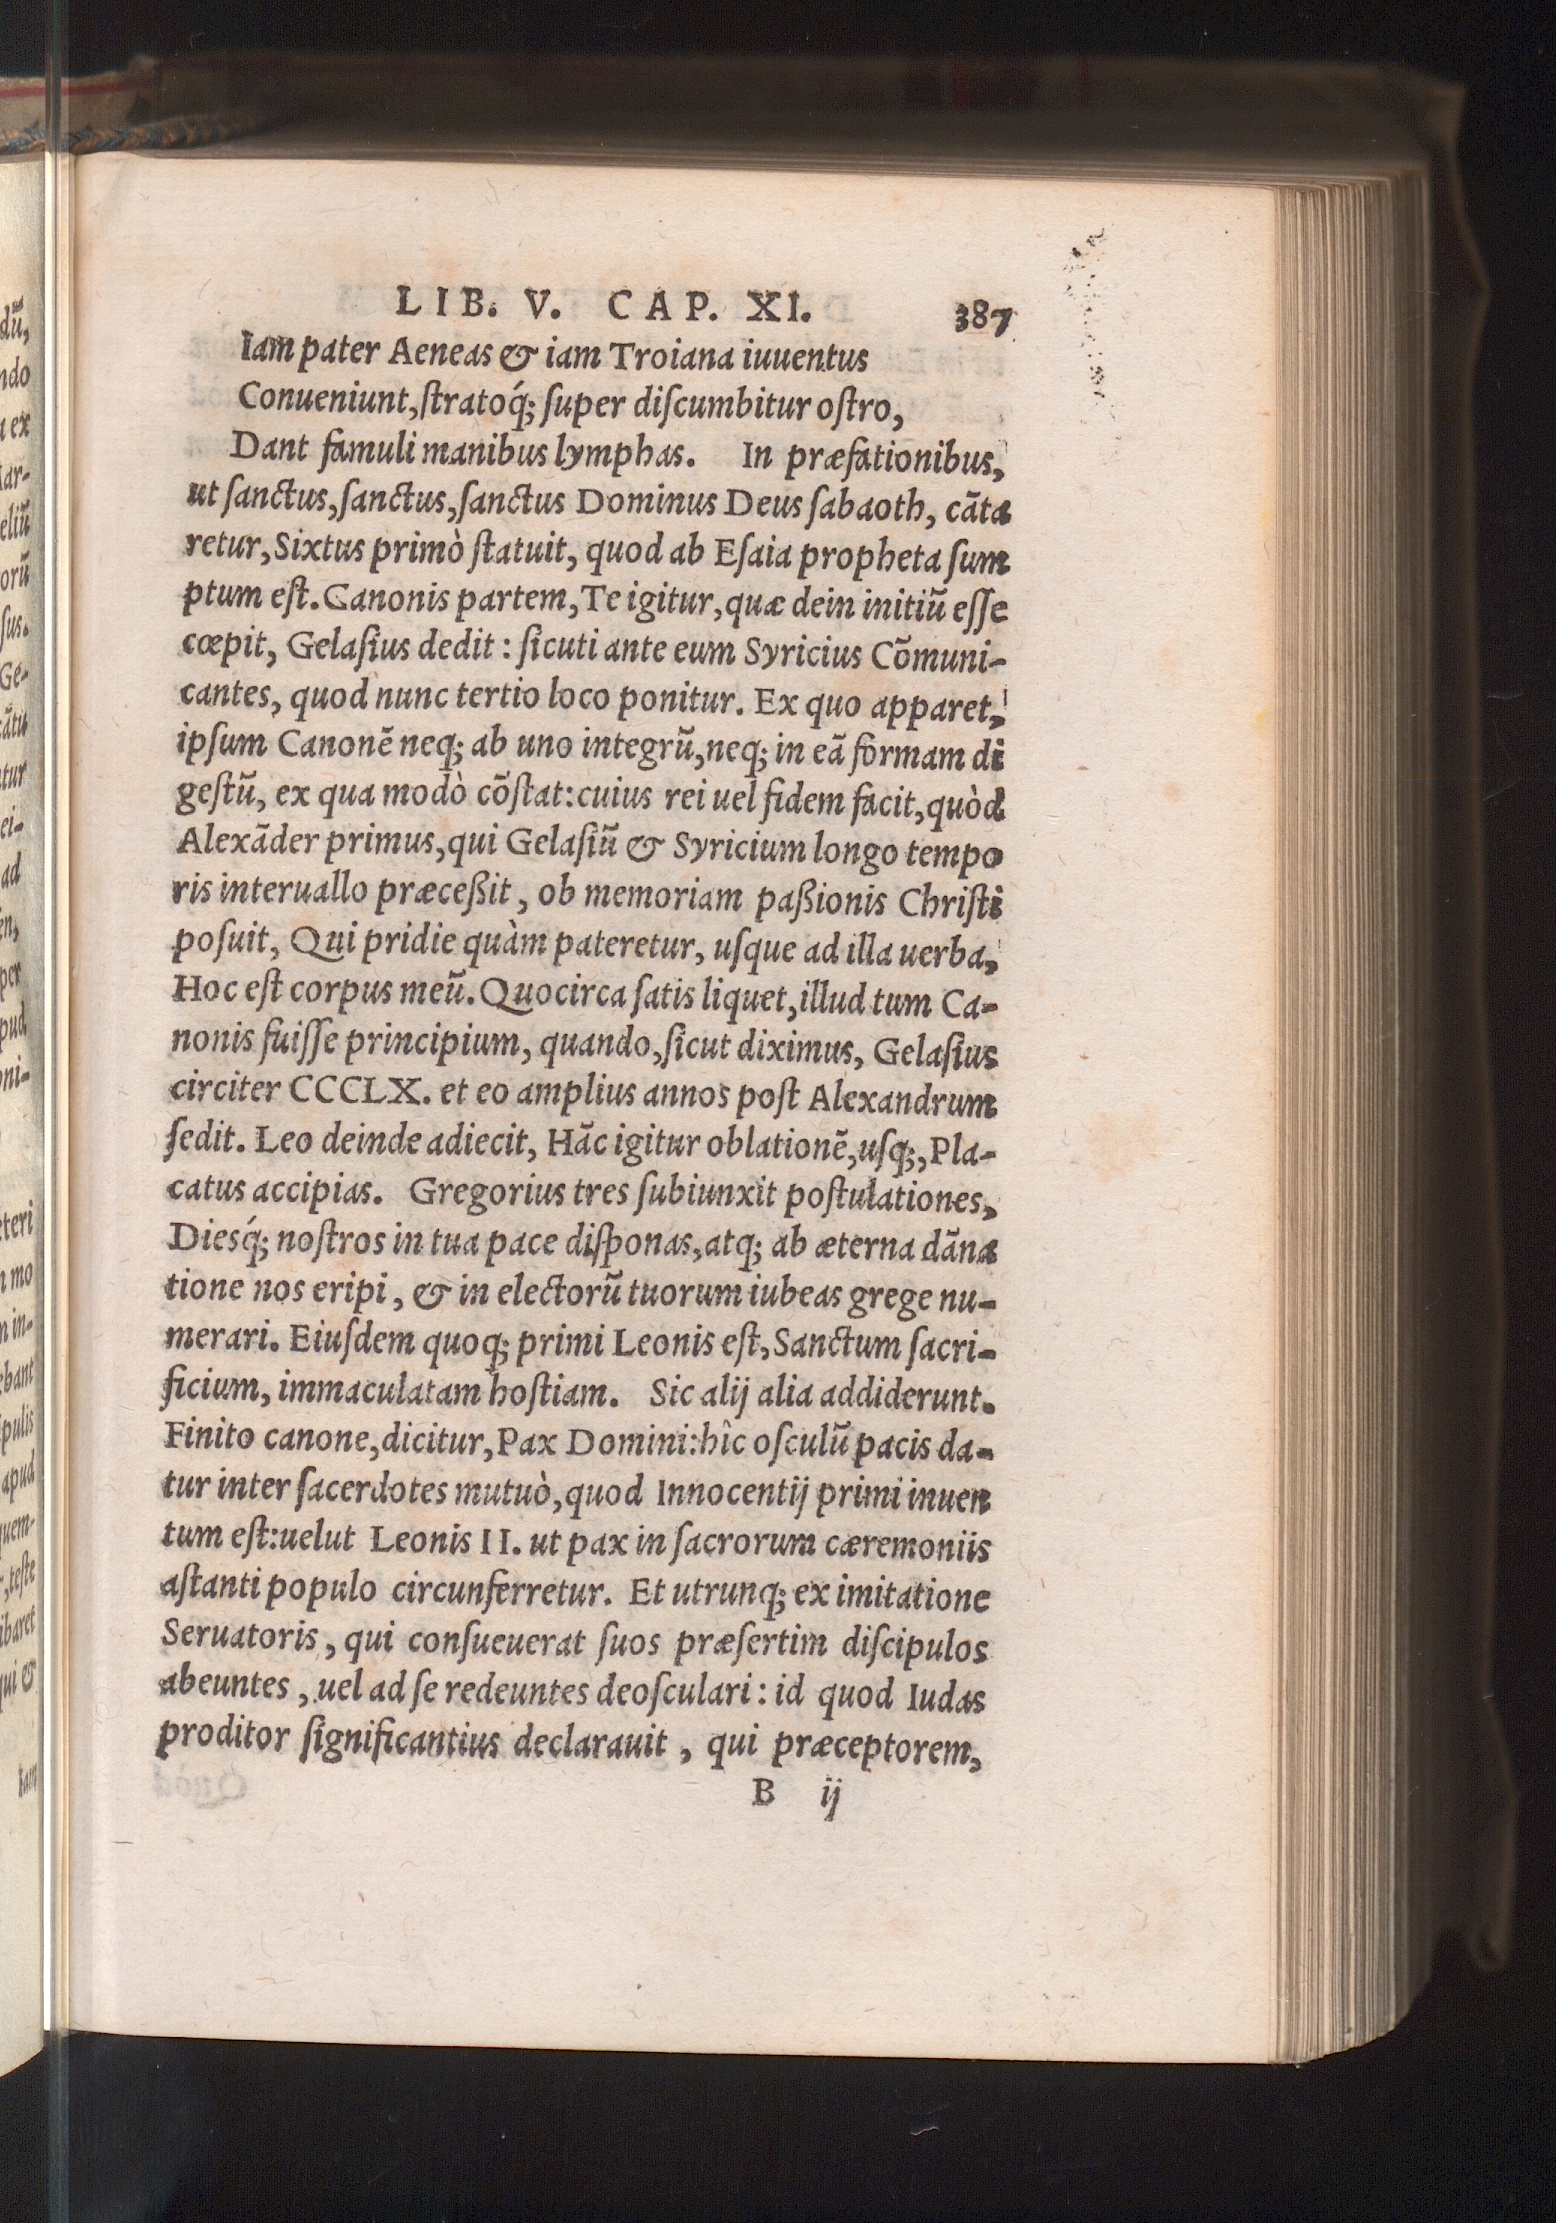 LIB. V. CAP. XI. 387
Iam pater Aeneas & iam Troiana iuuentus
Conueniunt, ſtratoq́; ſuper diſcumbitur oſtro,
Dant famuli manibus lymphas. In præfationibus,
ut ſanctus, ſanctus, ſanctus Dominus Deus ſabaoth, cāta
retur, Sixtus primò ſtatuit, quod ab Eſaia propheta ſum
ptum eſt. Canonis partem, Te igitur, quæ dein initiū eſſe
cœpit, Gelaſius dedit: ſicuti ante eum Syricius Cōmuni-
cantes, quod nunc tertio loco ponitur. Ex quo apparet,
ipſum Canonē neq; ab uno integrū, neq; in eā formam di
geſtū, ex qua modò cōſtat: cuius rei uel fidem facit, quòd
Alexāder primus, qui Gelaſiū & Syricium longo tempo
ris interuallo præceßit, ob memoriam paßionis Chriſti
poſuit, Qui pridie quàm pateretur, uſque ad illa uerba,
Hoc eſt corpus meū. Quocirca ſatis liquet, illud tum Ca-
nonis fuiſſe principium, quando, ſicut diximus, Gelaſius
circiter CCCLX. et eo amplius annos poſt Alexandrum
ſedit. Leo deinde adiecit, Hāc igitur oblationē, uſq;, Pla-
catus accipias. Gregorius tres ſubiunxit poſtulationes,
Diesq́; noſtros in tua pace diſponas, atq; ab æterna dāna
tione nos eripi, & in electorū tuorum iubeas grege nu-
merari. Eiuſdem quoq; primi Leonis eſt, Sanctum ſacri-
ficium, immaculatam hoſtiam. Sic alij alia addiderunt.
Finito canone, dicitur, Pax Domini: hîc oſculū pacis da-
tur inter ſacerdotes mutuò, quod Innocentij primi inuen
tum eſt: uelut Leonis II. ut pax in ſacrorum cæremoniis
aſtanti populo circunferretur. Et utrunq; ex imitatione
Seruatoris, qui conſueuerat ſuos præſertim diſcipulos
abeuntes, uel ad ſe redeuntes deoſculari: id quod Iudas
proditor ſignificantius declarauit, qui præceptorem,
B ij